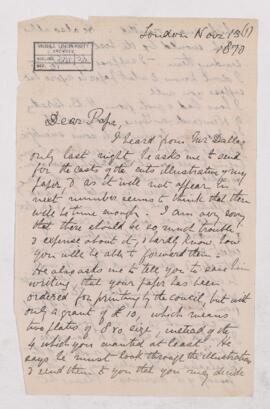 London Novr 15 (1)
1870
McGILL UNIVERSITY
ARCHIVES
ACC. NO.
REF.
Dear Papa,
I heard from Mr Dallas
only last night he asks me to send
for the casts of the cuts illustrating my
paper & as it will not appear in
next number seems to think that there
will be time enough. I am very sorry
that there should be so much trouble
& expense about it, I hardly know how
you will be able to forward them.
He also asks me to tell you to save him
writing, that your paper has been
ordered for printing by the council, but with
only a grant of £10, which means
two plates of 8vo size, instead of the
4 which you wanted at least. He
says he must look through the illustrations
& send them to you that you may decide